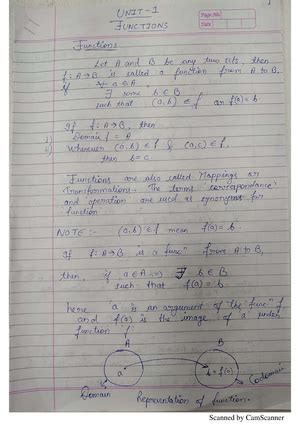 UNIT-1
FUNCTIONS
Page No.
Date
Functions
Let A and B be any two sets, then
f: A→B is called a function from A to B,
if ∀ a ∈ A
∃ some b ∈ B
such that (a, b) ∈ f or f(a) = b.
If f: A→B, then
i) Domain f = A
ii) Whenever (a, b) ∈ f & (a, c) ∈ f,
then b = c.
Functions are also called Mappings or
Transformations. The terms correspondance
and operation are used as synonyms for
function
NOTE :- (a, b) ∈ f mean f(a) = b.
If f: A→B is a funcⁿ from A to B,
then, if a ∈ A ∃ b ∈ B
such that f(a) = b.
here 'a' is an argument of the funcⁿ f
and f(a) is the image of 'a' under
function f.
A B
a b = f(a)
Domain Codomain
Representation of function.
Scanned by CamScanner